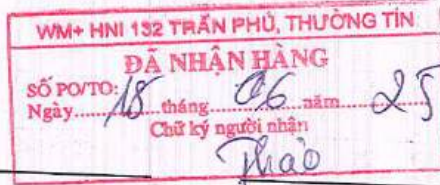 WM+ HNI 132 TRẦN PHÚ, THƯỜNG TÍN
ĐÃ NHẬN HÀNG
SỐ PO/TO:
Ngày 18 tháng 06 năm 25
Chữ ký người nhận
Thảo